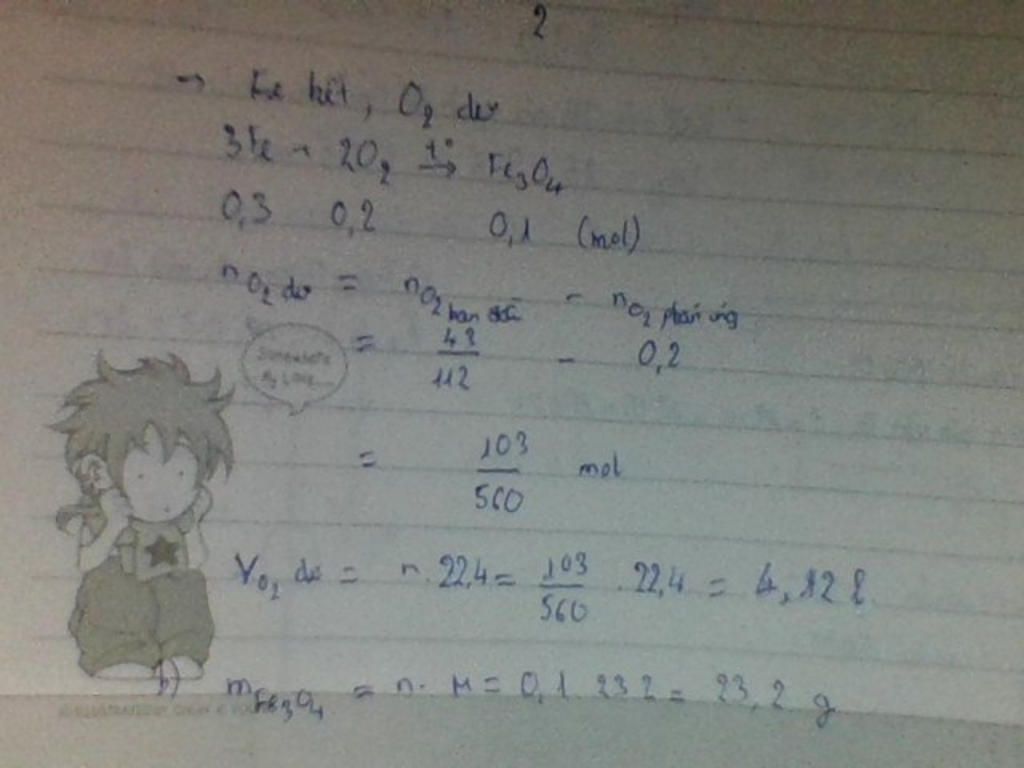 2
→ Fe hết, O₂ dư
3Fe + 2O₂ t°→ Fe₃O₄
0,3 0,2 0,1 (mol)
nO₂ dư = nO₂ ban đầu - nO₂ phản ứng
= 43/112 - 0,2
= 103/560 mol
VO₂ dư = n. 22,4 = 103/560 . 22,4 = 4,12 l
b) mFe₃O₄ = n. M = 0,1 . 232 = 23,2 g